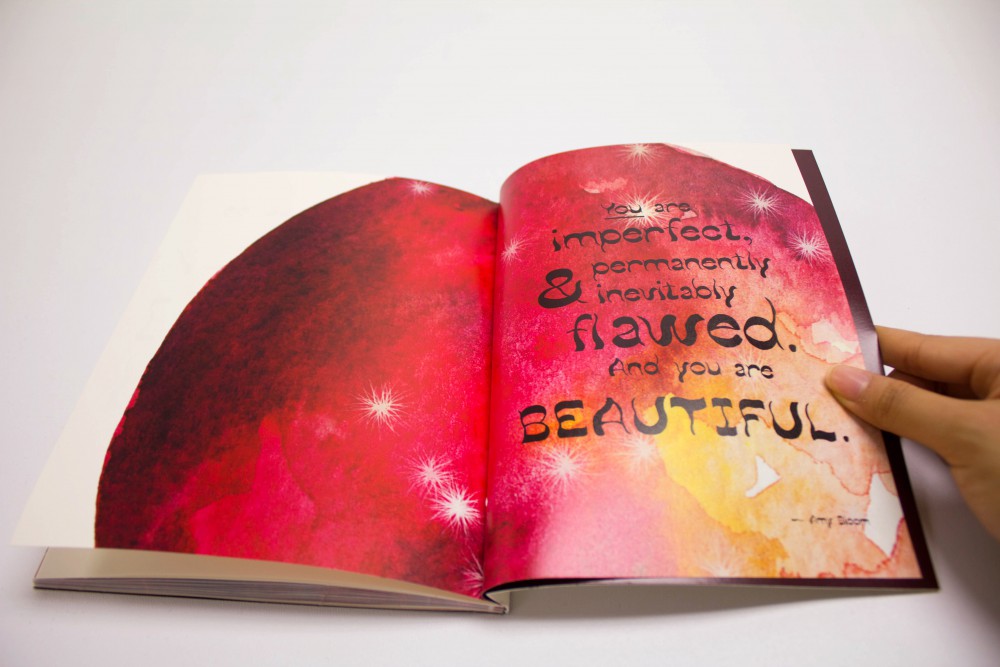 You are
imperfect,
permanently
& inevitably
flawed.
And you are
BEAUTIFUL.
— Amy Bloom